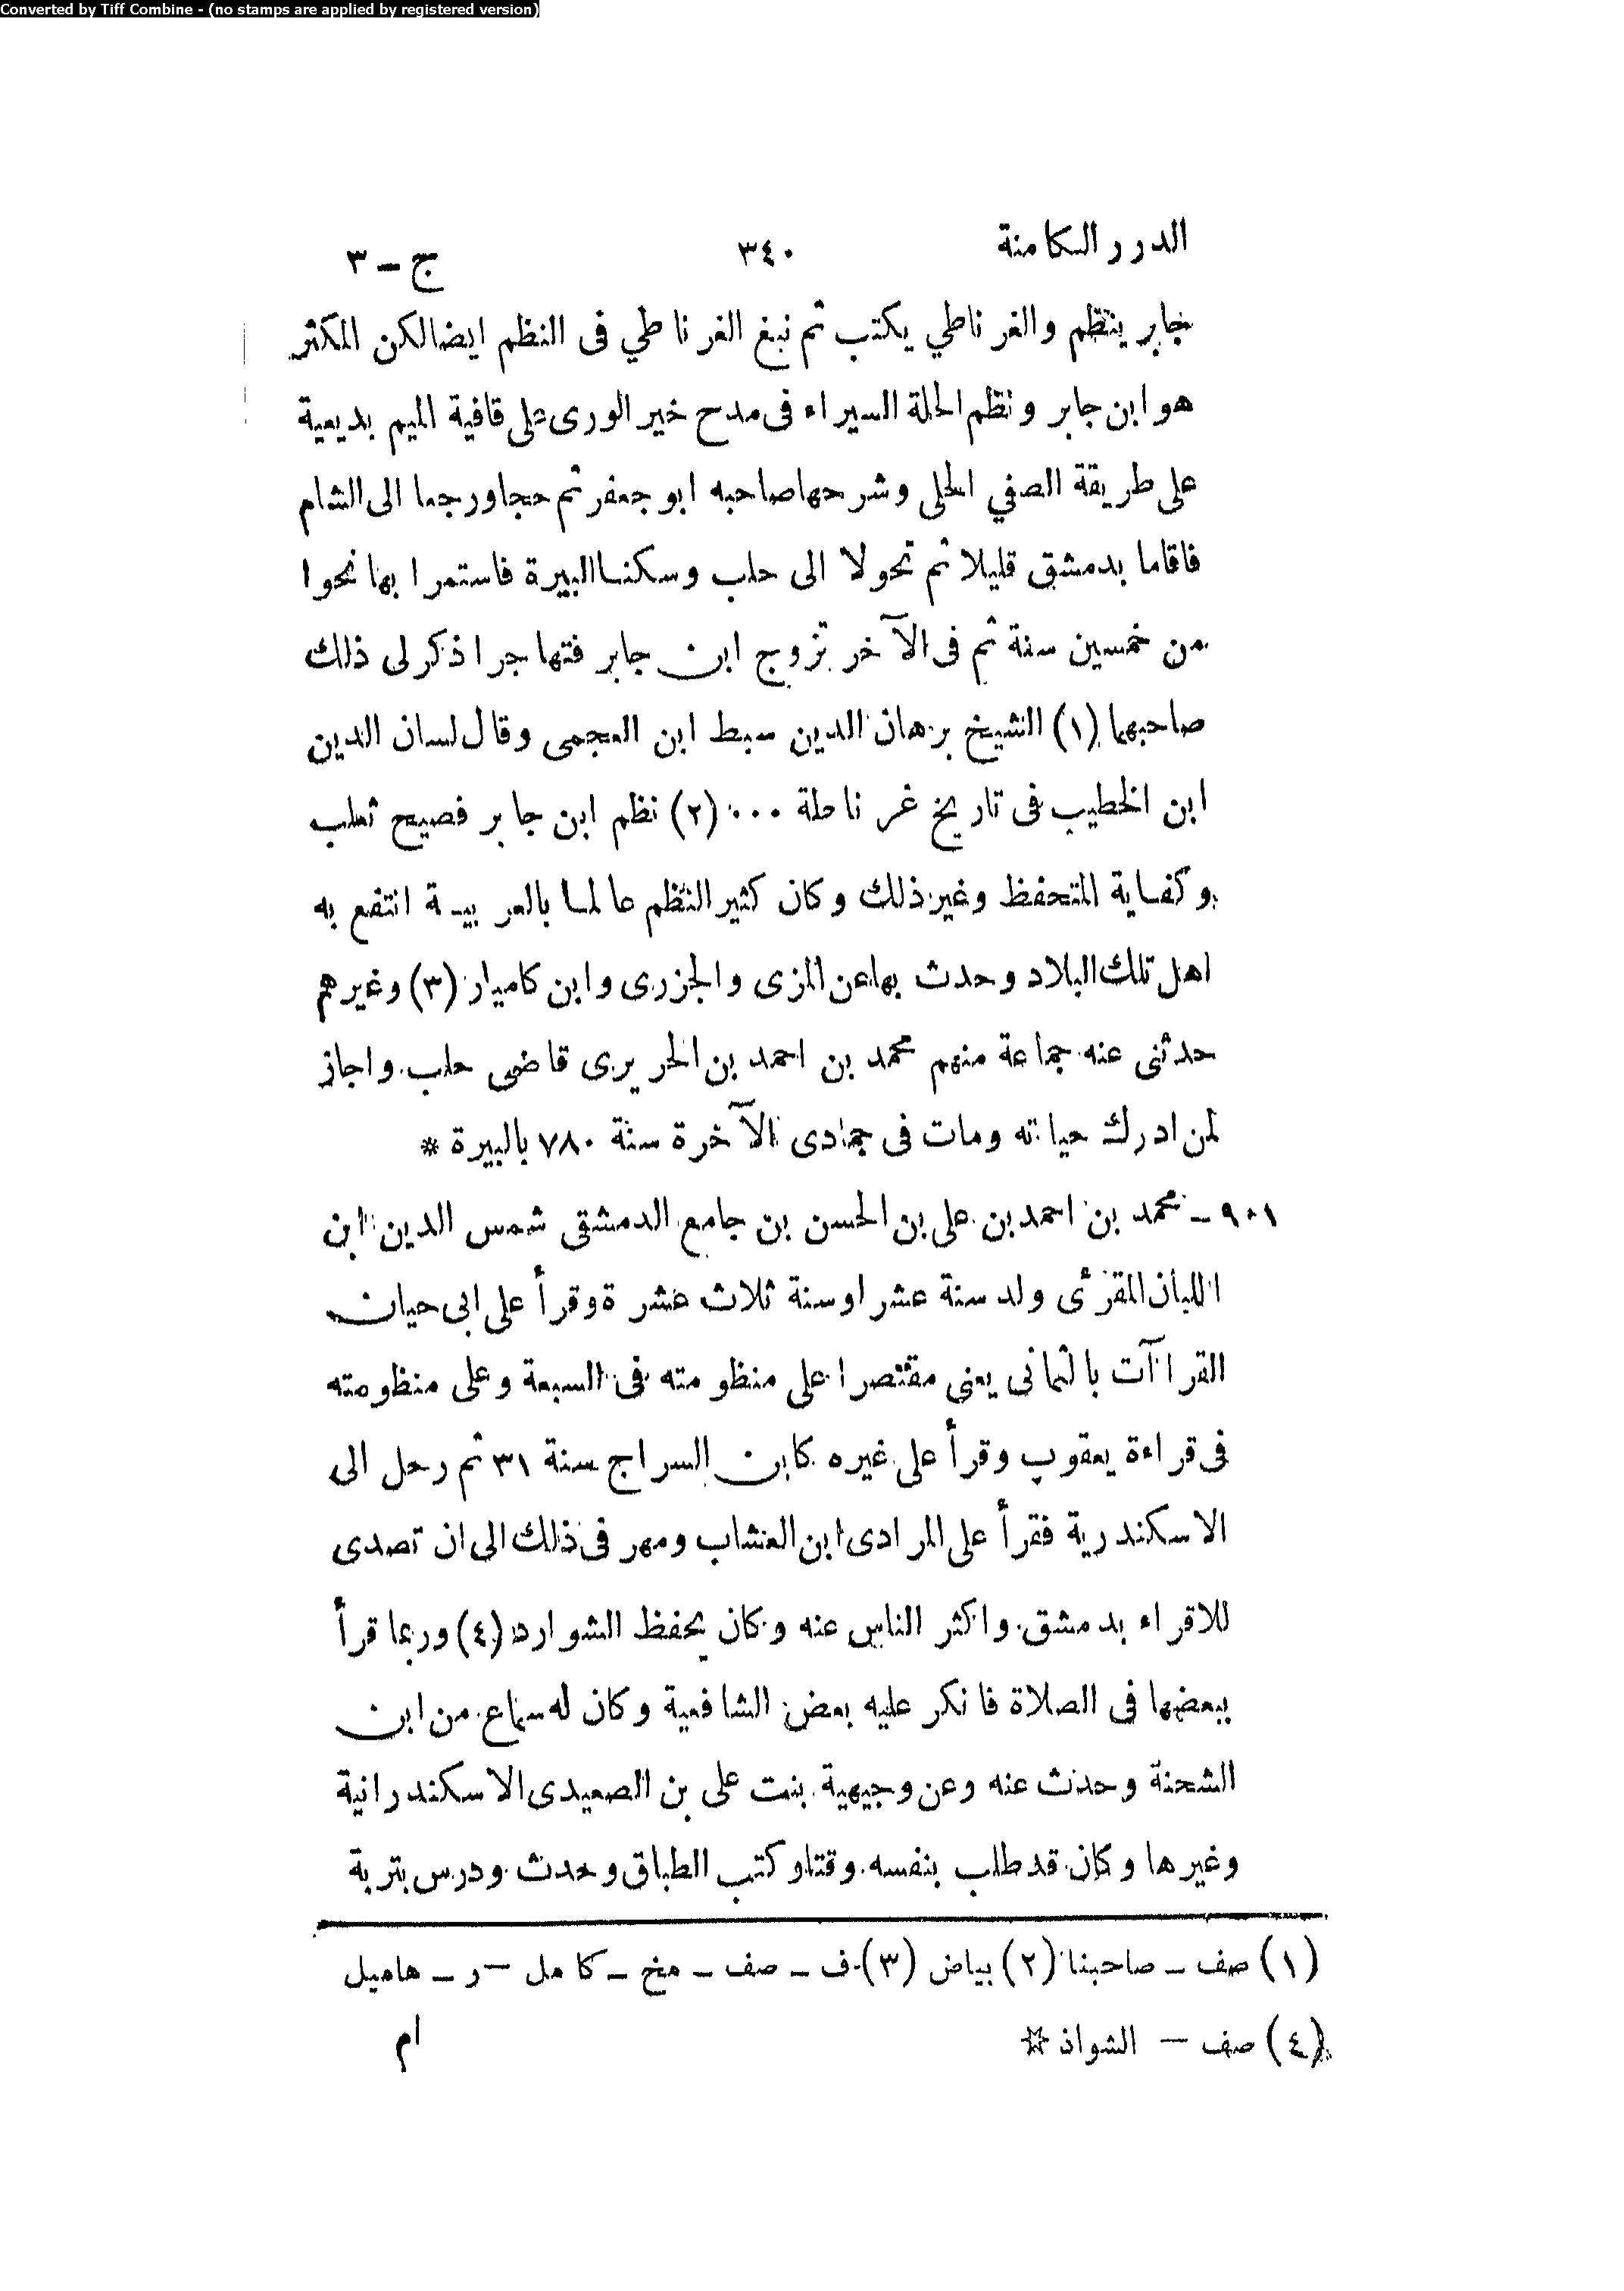 Converted by Tiff Combine - (no stamps are applied by registered version)
الدرر الكامنة ٣٤٠ ج - ٣
جابر ينظم والغرناطي يكتب ثم نبغ الغرناطي فى النظم ايضا لكن المكثر
هو ابن جابر ونظم الحلة السيراء فى مدح خير الورى على قافية الميم بديعية
على طريقة الصفي الحلى وشرحها صاحبه ابو جعفر ثم حجا ورجعا الى الشام
فاقاما بدمشق قليلا ثم تحولا الى حلب وسكنا البيرة فاستمرا بها نحوا
من خمسين سنة ثم فى الآخر تزوج ابن جابر فتهاجرا ذكر لى ذلك
صاحبهما (١) الشيخ برهان الدين سبط ابن العجمى وقال لسان الدين
ابن الخطيب فى تاريخ غرناطة ٠٠٠ (٢) نظم ابن جابر فصيح ثعلب
وكفاية المتحفظ وغير ذلك وكان كثير النظم عالما بالعربية انتفع به
اهل تلك البلاد وحدث بها عن المزى والجزرى وابن كاميار (٣) وغيرهم
حدثنى عنه جماعة منهم محمد بن احمد بن الحريرى قاضى حلب واجاز
لمن ادرك حياته ومات فى جمادى الآخرة سنة ٧٨٠ بالبيرة *
٩٠١ - محمد بن احمد بن على بن الحسن بن جامع الدمشقى شمس الدين ابن
اللبان المقرئ ولد سنة عشر اوسنة ثلاث عشرة وقرأ على ابى حيان
القراآت بالثمانى يعنى مقتصرا على منظومته فى السبعة وعلى منظومته
فى قراءة يعقوب وقرأ على غيره كابن السراج سنة ٣١ ثم رحل الى
الاسكندرية فقرأ على المرادى ابن العشاب ومهر فى ذلك الى ان تصدى
للاقراء بدمشق واكثر الناس عنه وكان يحفظ الشوارد (٤) وربما قرأ
ببعضها فى الصلاة فانكر عليه بعض الشافعية وكان له سماع من ابن
الشحنة وحدث عنه وعن وجيهية بنت على بن الصعيدى الاسكندرانية
وغيرها وكان قد طلب بنفسه وقتا وكتب الطباق وحدث ودرس بتربة
(١) صف - صاحبنا (٢) بياض (٣) ف - صف - مخ - كامل - ر - هاميل
(٤) صف - الشواذ ☆ ام